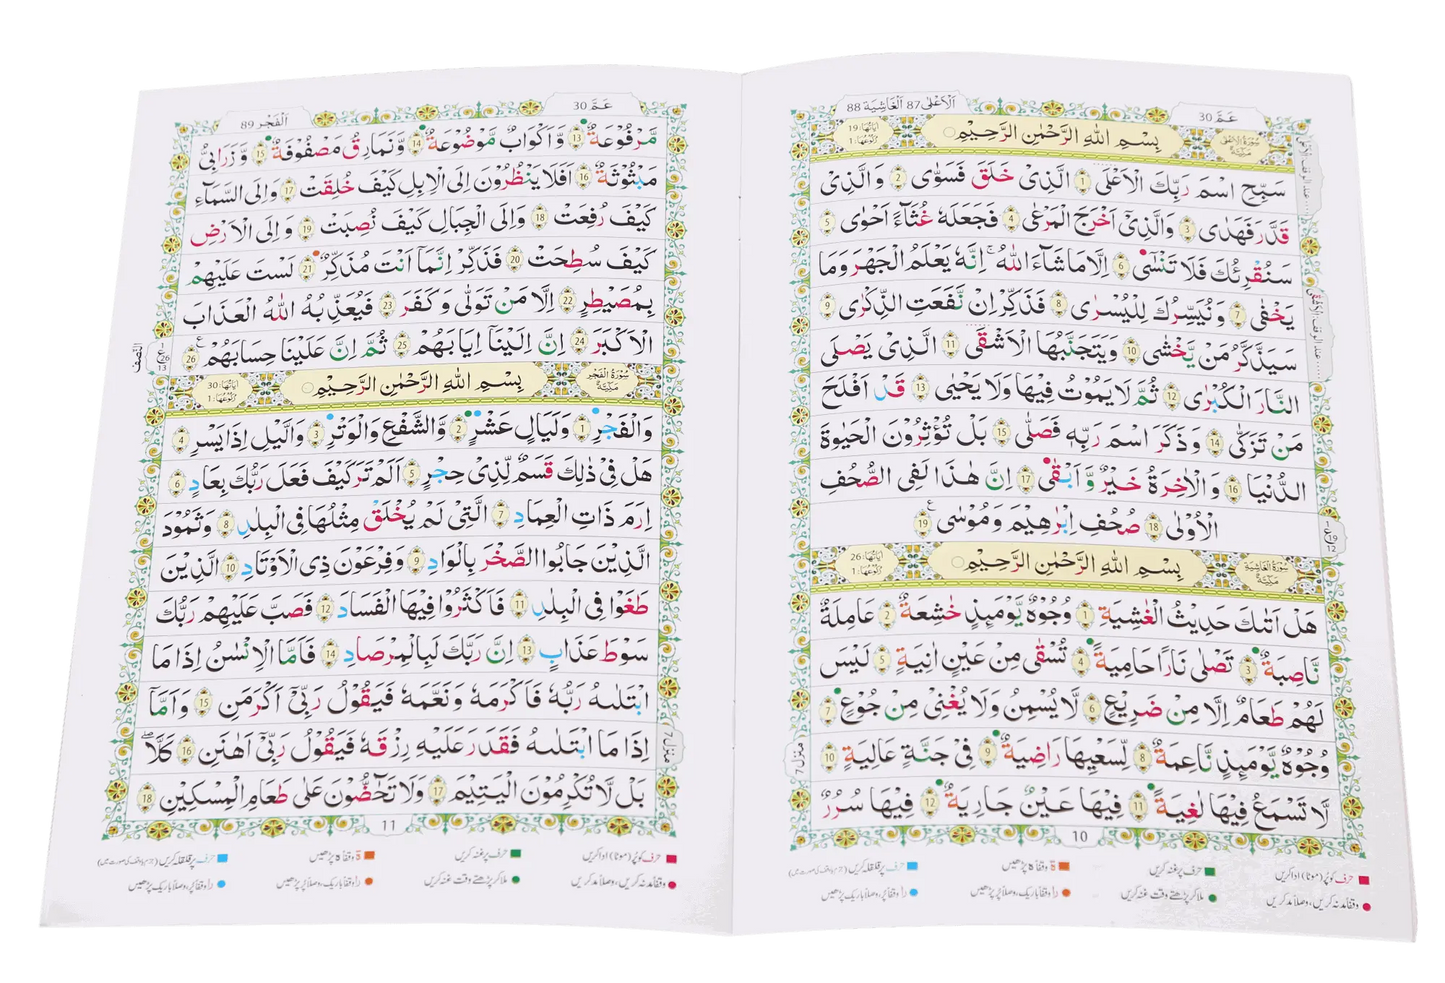 عَمَّ 30
اَلْاَعْلٰى 87 اَلْغَاشِيَة 88
سُوْرَةُ الْاَعْلٰى مَكِّيَّةٌ
بِسْمِ اللهِ الرَّحْمٰنِ الرَّحِيْمِ
اٰيَاتُهَا: 19
رُكُوْعُهَا: 1
سَبِّحِ اسْمَ رَبِّكَ الْاَعْلَى 1 الَّذِىْ خَلَقَ فَسَوّٰى 2 وَالَّذِىْ
قَدَّرَ فَهَدٰى 3 وَالَّذِىْٓ اَخْرَجَ الْمَرْعٰى 4 فَجَعَلَهٗ غُثَآءً اَحْوٰى 5
سَنُقْرِئُكَ فَلَا تَنْسٰٓى 6 اِلَّا مَا شَآءَ اللّٰهُ ؕ اِنَّهٗ يَعْلَمُ الْجَهْرَ وَمَا
يَخْفٰى 7 وَنُيَسِّرُكَ لِلْيُسْرٰى 8 فَذَكِّرْ اِنْ نَّفَعَتِ الذِّكْرٰى 9
سَيَذَّكَّرُ مَنْ يَّخْشٰى 10 وَيَتَجَنَّبُهَا الْاَشْقَى 11 الَّذِىْ يَصْلَى
النَّارَ الْكُبْرٰى 12 ثُمَّ لَا يَمُوْتُ فِيْهَا وَلَا يَحْيٰى 13 قَدْ اَفْلَحَ
مَنْ تَزَكّٰى 14 وَذَكَرَ اسْمَ رَبِّهٖ فَصَلّٰى 15 بَلْ تُؤْثِرُوْنَ الْحَيٰوةَ
الدُّنْيَا 16 وَالْاٰخِرَةُ خَيْرٌ وَّاَبْقٰى 17 اِنَّ هٰذَا لَفِى الصُّحُفِ
الْاُوْلٰى 18 صُحُفِ اِبْرٰهِيْمَ وَمُوْسٰى 19
سُوْرَةُ الْغَاشِيَةِ مَكِّيَّةٌ
بِسْمِ اللهِ الرَّحْمٰنِ الرَّحِيْمِ
اٰيَاتُهَا: 26
رُكُوْعُهَا: 1
هَلْ اَتٰىكَ حَدِيْثُ الْغَاشِيَةِ 1 وُجُوْهٌ يَّوْمَئِذٍ خَاشِعَةٌ 2 عَامِلَةٌ
نَّاصِبَةٌ 3 تَصْلٰى نَارًا حَامِيَةً 4 تُسْقٰى مِنْ عَيْنٍ اٰنِيَةٍ 5 لَيْسَ
لَهُمْ طَعَامٌ اِلَّا مِنْ ضَرِيْعٍ 6 لَّا يُسْمِنُ وَلَا يُغْنِىْ مِنْ جُوْعٍ 7
وُجُوْهٌ يَّوْمَئِذٍ نَّاعِمَةٌ 8 لِّسَعْيِهَا رَاضِيَةٌ 9 فِىْ جَنَّةٍ عَالِيَةٍ 10
لَّا تَسْمَعُ فِيْهَا لَاغِيَةً 11 فِيْهَا عَيْنٌ جَارِيَةٌ 12 فِيْهَا سُرُرٌ
منزل 7
10
حرف کو پُر (موٹا) ادا کریں
حرف پر غنہ کریں
ۃ وقفاً ہ پڑھیں
حرف پر قلقلہ کریں
وقفاً مد نہ کریں، وصلاً مد کریں
ملا کر پڑھتے وقت غنہ کریں
را وقفاً باریک، وصلاً پُر پڑھیں
را وقفاً پُر، وصلاً باریک پڑھیں
عَمَّ 30
اَلْفَجْر 89
مَّرْفُوْعَةٌ 13 وَّاَكْوَابٌ مَّوْضُوْعَةٌ 14 وَّنَمَارِقُ مَصْفُوْفَةٌ 15 وَّزَرَابِىُّ
مَبْثُوْثَةٌ 16 اَفَلَا يَنْظُرُوْنَ اِلَى الْاِبِلِ كَيْفَ خُلِقَتْ 17 وَاِلَى السَّمَآءِ
كَيْفَ رُفِعَتْ 18 وَاِلَى الْجِبَالِ كَيْفَ نُصِبَتْ 19 وَاِلَى الْاَرْضِ
كَيْفَ سُطِحَتْ 20 فَذَكِّرْ اِنَّمَآ اَنْتَ مُذَكِّرٌ 21 لَسْتَ عَلَيْهِمْ
بِمُصَۜيْطِرٍ 22 اِلَّا مَنْ تَوَلّٰى وَكَفَرَ 23 فَيُعَذِّبُهُ اللّٰهُ الْعَذَابَ
الْاَكْبَرَ 24 اِنَّ اِلَيْنَآ اِيَابَهُمْ 25 ثُمَّ اِنَّ عَلَيْنَا حِسَابَهُمْ 26
النّصف
سُوْرَةُ الْفَجْرِ مَكِّيَّةٌ
بِسْمِ اللهِ الرَّحْمٰنِ الرَّحِيْمِ
اٰيَاتُهَا: 30
رُكُوْعُهَا: 1
وَالْفَجْرِ 1 وَلَيَالٍ عَشْرٍ 2 وَّالشَّفْعِ وَالْوَتْرِ 3 وَالَّيْلِ اِذَا يَسْرِ 4
هَلْ فِىْ ذٰلِكَ قَسَمٌ لِّذِىْ حِجْرٍ 5 اَلَمْ تَرَ كَيْفَ فَعَلَ رَبُّكَ بِعَادٍ 6
اِرَمَ ذَاتِ الْعِمَادِ 7 الَّتِىْ لَمْ يُخْلَقْ مِثْلُهَا فِى الْبِلَادِ 8 وَثَمُوْدَ
الَّذِيْنَ جَابُوا الصَّخْرَ بِالْوَادِ 9 وَفِرْعَوْنَ ذِى الْاَوْتَادِ 10 الَّذِيْنَ
طَغَوْا فِى الْبِلَادِ 11 فَاَكْثَرُوْا فِيْهَا الْفَسَادَ 12 فَصَبَّ عَلَيْهِمْ رَبُّكَ
سَوْطَ عَذَابٍ 13 اِنَّ رَبَّكَ لَبِالْمِرْصَادِ 14 فَاَمَّا الْاِنْسٰنُ اِذَا مَا
ابْتَلٰىهُ رَبُّهٗ فَاَكْرَمَهٗ وَنَعَّمَهٗ فَيَقُوْلُ رَبِّىْٓ اَكْرَمَنِ 15 وَاَمَّآ
اِذَا مَا ابْتَلٰىهُ فَقَدَرَ عَلَيْهِ رِزْقَهٗ فَيَقُوْلُ رَبِّىْٓ اَهَانَنِ 16 كَلَّا
بَلْ لَّا تُكْرِمُوْنَ الْيَتِيْمَ 17 وَلَا تَحٰٓضُّوْنَ عَلٰى طَعَامِ الْمِسْكِيْنِ 18
منزل 7
11
حرف کو پُر (موٹا) ادا کریں
حرف پر غنہ کریں
ۃ وقفاً ہ پڑھیں
حرف پر قلقلہ کریں
وقفاً مد نہ کریں، وصلاً مد کریں
ملا کر پڑھتے وقت غنہ کریں
را وقفاً باریک، وصلاً پُر پڑھیں
را وقفاً پُر، وصلاً باریک پڑھیں